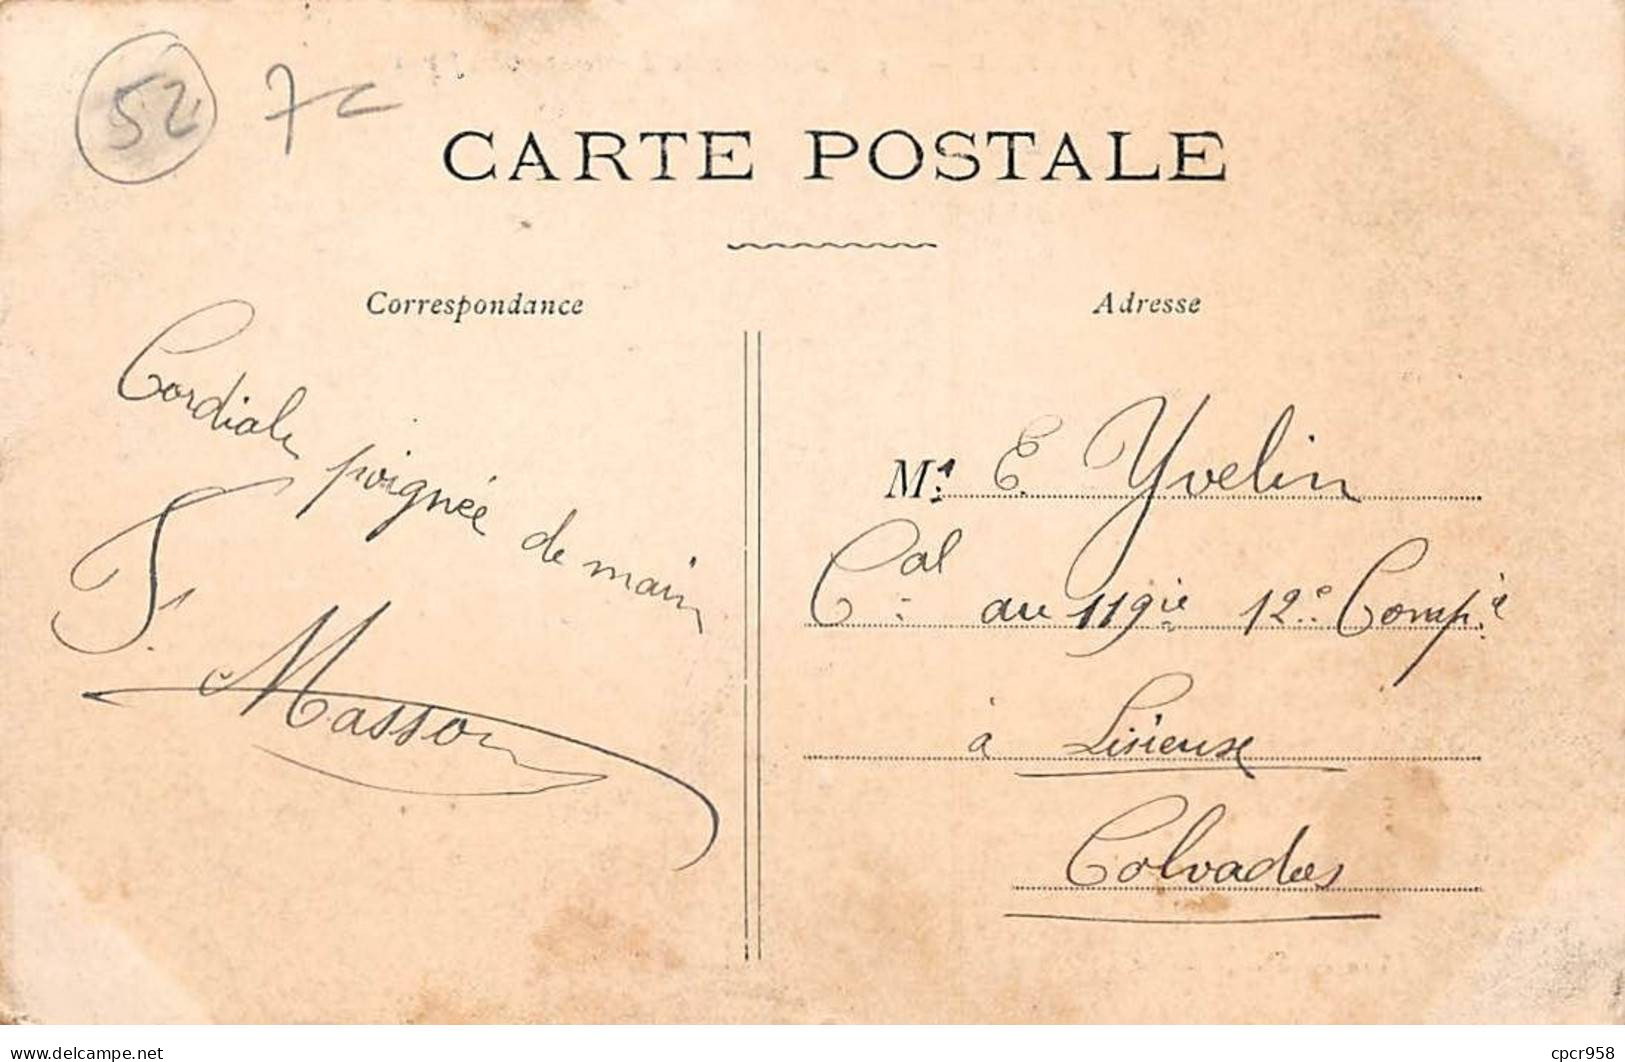 52 7c
CARTE POSTALE
Correspondance
Adresse
Cordiale poignée de main
F. Masson
Mr. E. Yvelin
Cal au 119ie 12e Compie
à Lisieux
Calvados
www.delcampe.net
cpcr958